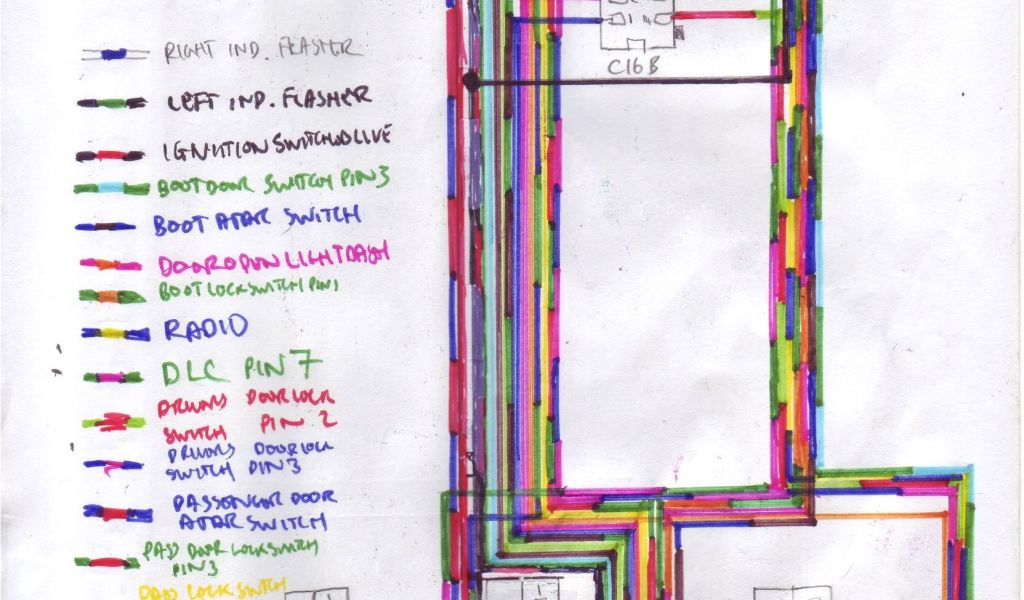 C16B
RIGHT IND. FLASHER
LEFT IND. FLASHER
IGNITION SWITCHD LIVE
BOOT DOOR SWITCH PIN 3
BOOT AJAR SWITCH
DOOR OPEN LIGHT DASH
BOOT LOCK SWITCH PIN 1
RADIO
DLC PIN 7
DRIVERS DOOR LOCK
SWITCH PIN 2
DRIVERS DOOR LOCK
SWITCH PIN 3
PASSENGER DOOR
AJAR SWITCH
PASS DOOR LOCK SWITCH
PIN 3
LOCK SWITCH